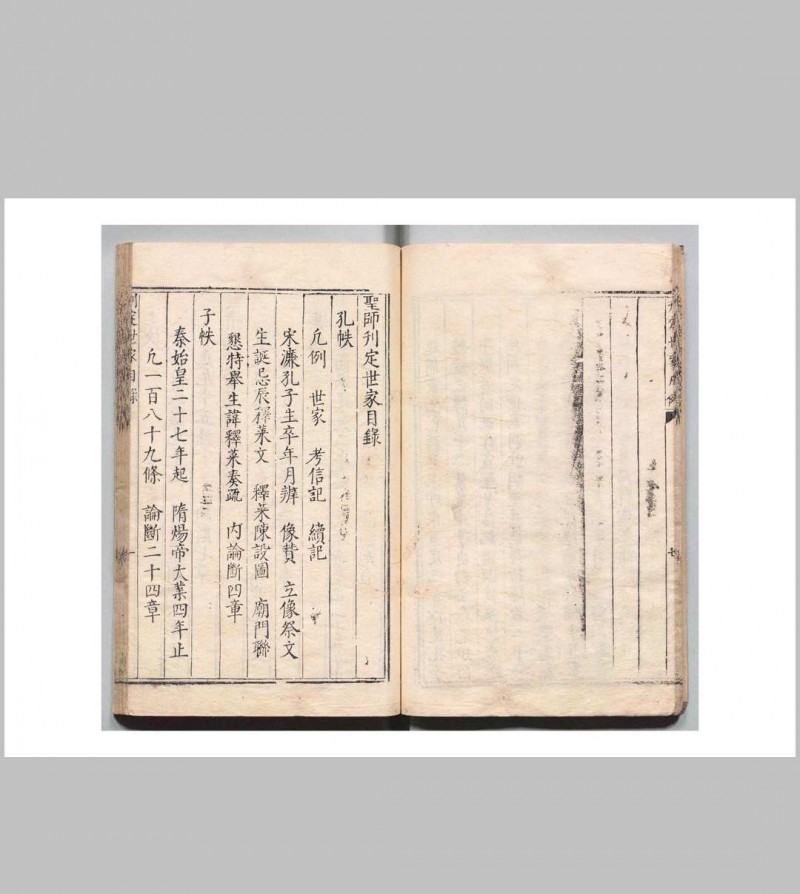 聖師刊定世家目錄
孔帙
凡例 世家 考信記 續記
宋濂孔子生卒年月辨 像贊 立像祭文
生誕忌辰釋菜文 釋菜陳設圖 廟門聯
懇特舉生諱釋菜奏疏 內論斷四章
子帙
秦始皇二十七年起 隋煬帝大業四年止
凡一百八十九條 論斷二十四章
刊定世家目錄